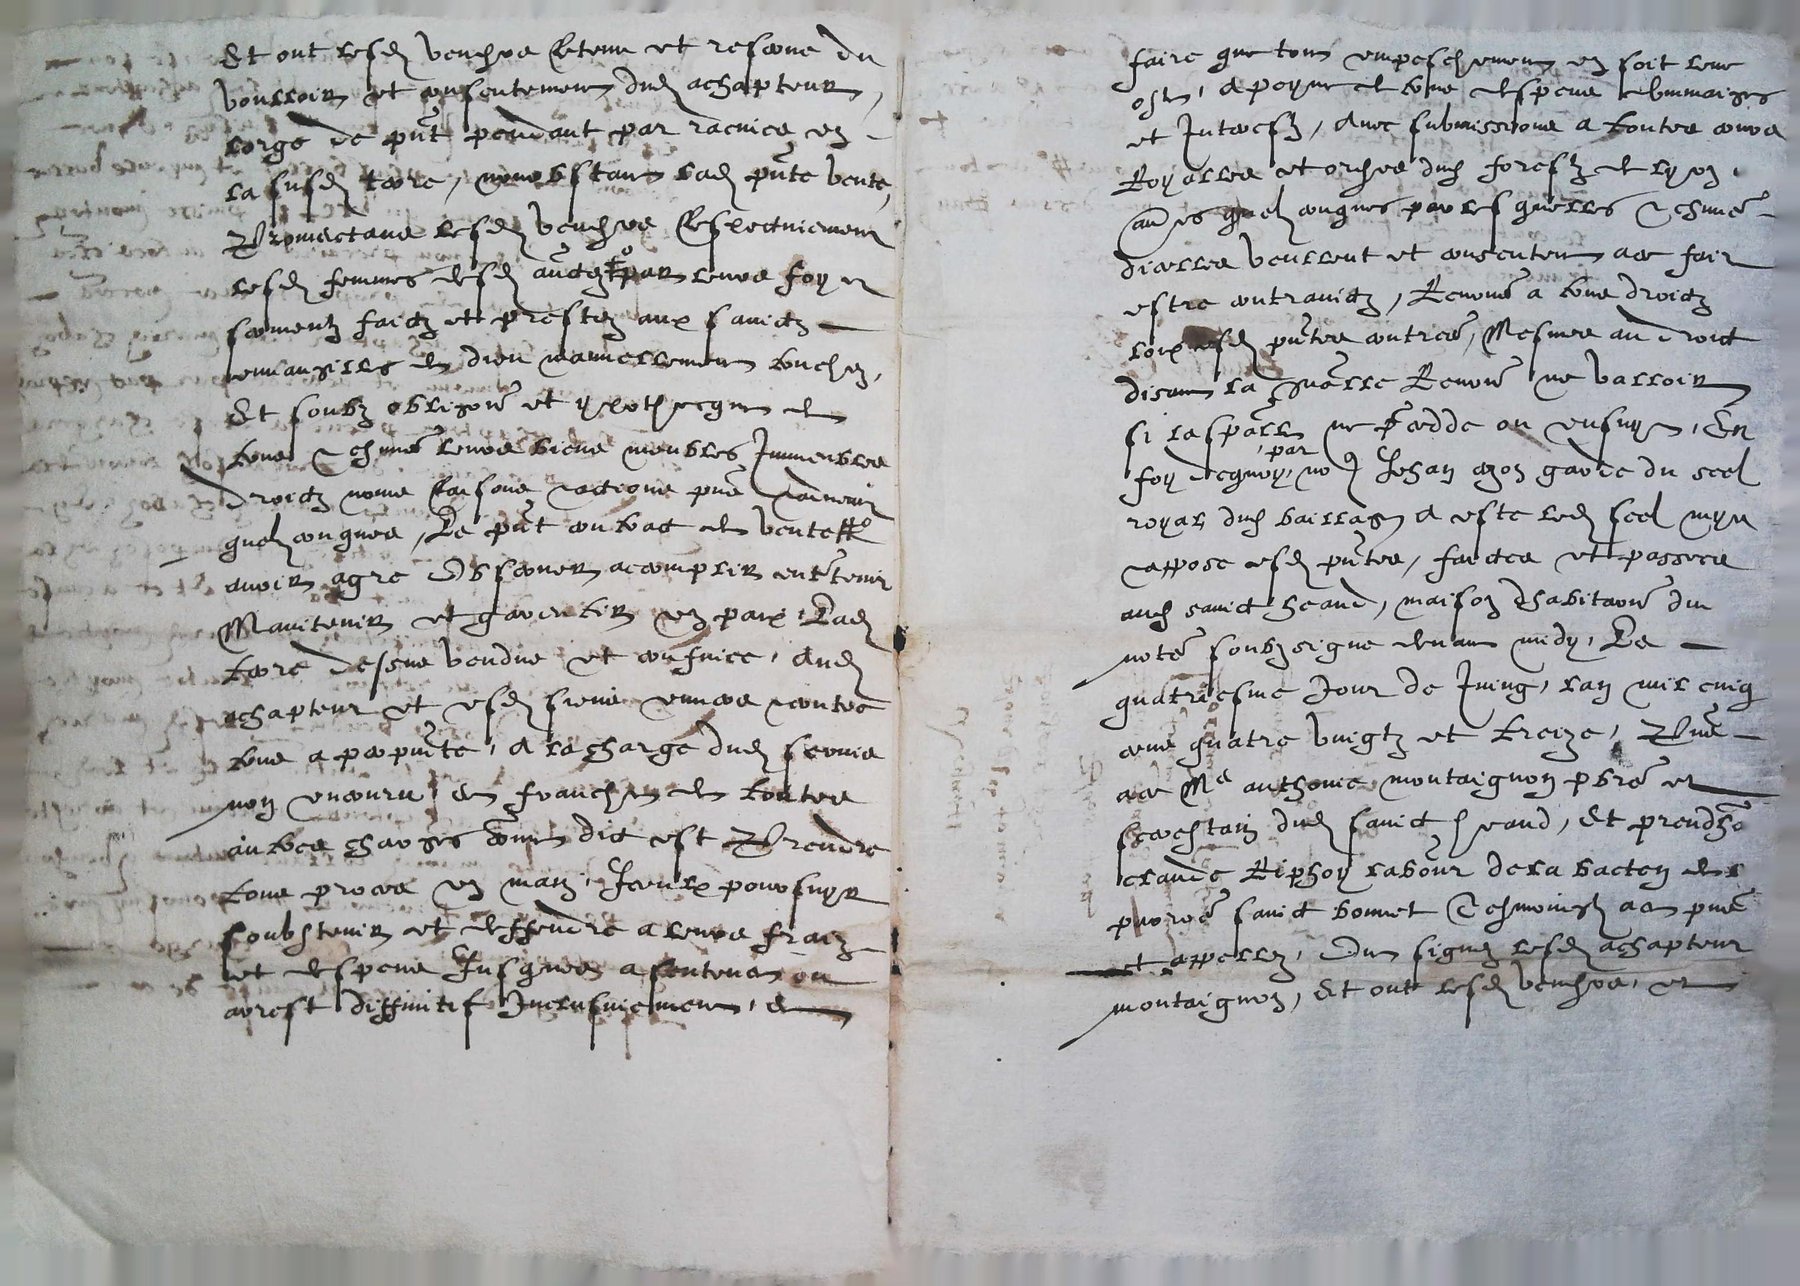 Et ont lesd vendrs Retenu et reserve du
voulloir et consentement dud achapteur,
lorge de pnt pendant par racines en
la susd terre, nonobstant lad pnte vente,
Promectans lesd vendrs Respectivement
lesd femmes desd auctz par leurs foy et
serementz faictz et prestez aux sainctz
euvangilles de dieu manuellement touchez,
Et soubz obligone et ypothecque de
tous leurs biens meubles Immeubles
droictz noms Raisons actions pns advenir
quelzconques, Le pnt contract de vente
avoir agre Observer acomplir entretenir
Maintenir et garentir en paix, Lad
terre dessus vendue et confinee, Aud
achapteur et esd siens envers contre
tous a perpete, A la charge dud servis
non encouru Et franche de toutes
aultres charges comme dict est Prendre
tous proces en main, Iceulx poursuyr
soubstenir et deffendre a leurs fraiz
et despens Jusques a sentence ou
arrest diffinitif Inclusivement, Et
faire que tout empeschement en soit leve
oste, A poyne de tous despens dommaiges
et Interestz, Avec submissions a toutes cours
Royalles et ordres dud forestz et lyon,
aultres quelconques par lesquelles
dicelles veullent et consentent a ce fair
estre contrainctz, Renone a tous droictz
loix esd pntes contres, Mesmes au droict
disant la gnalle Renone ne valloir
si la spalle ne precedde ou ensuyt, En
foy de quoy, par no Jehan gon garde du seel
royal dud baillage A este led seel mys
appose esd pntes, faictes et passees
aud sainct heand, maison dhabitaone du
notre soubzsigne avant midy, Le
quatriesme Jour de Juing, lan mil cinq
cens quatre vingtz et treize, Pns
ace Me anthonie montaignon pbre et
secrestain dud sainct heand, Et prendhe
claude Riphoy labour de la bacten de la
parroe sainct bonnet Tesmoingz ace pns
et appellez, Ont signez lesd achapteur
montaignon, Et ont lesd vendrs, et